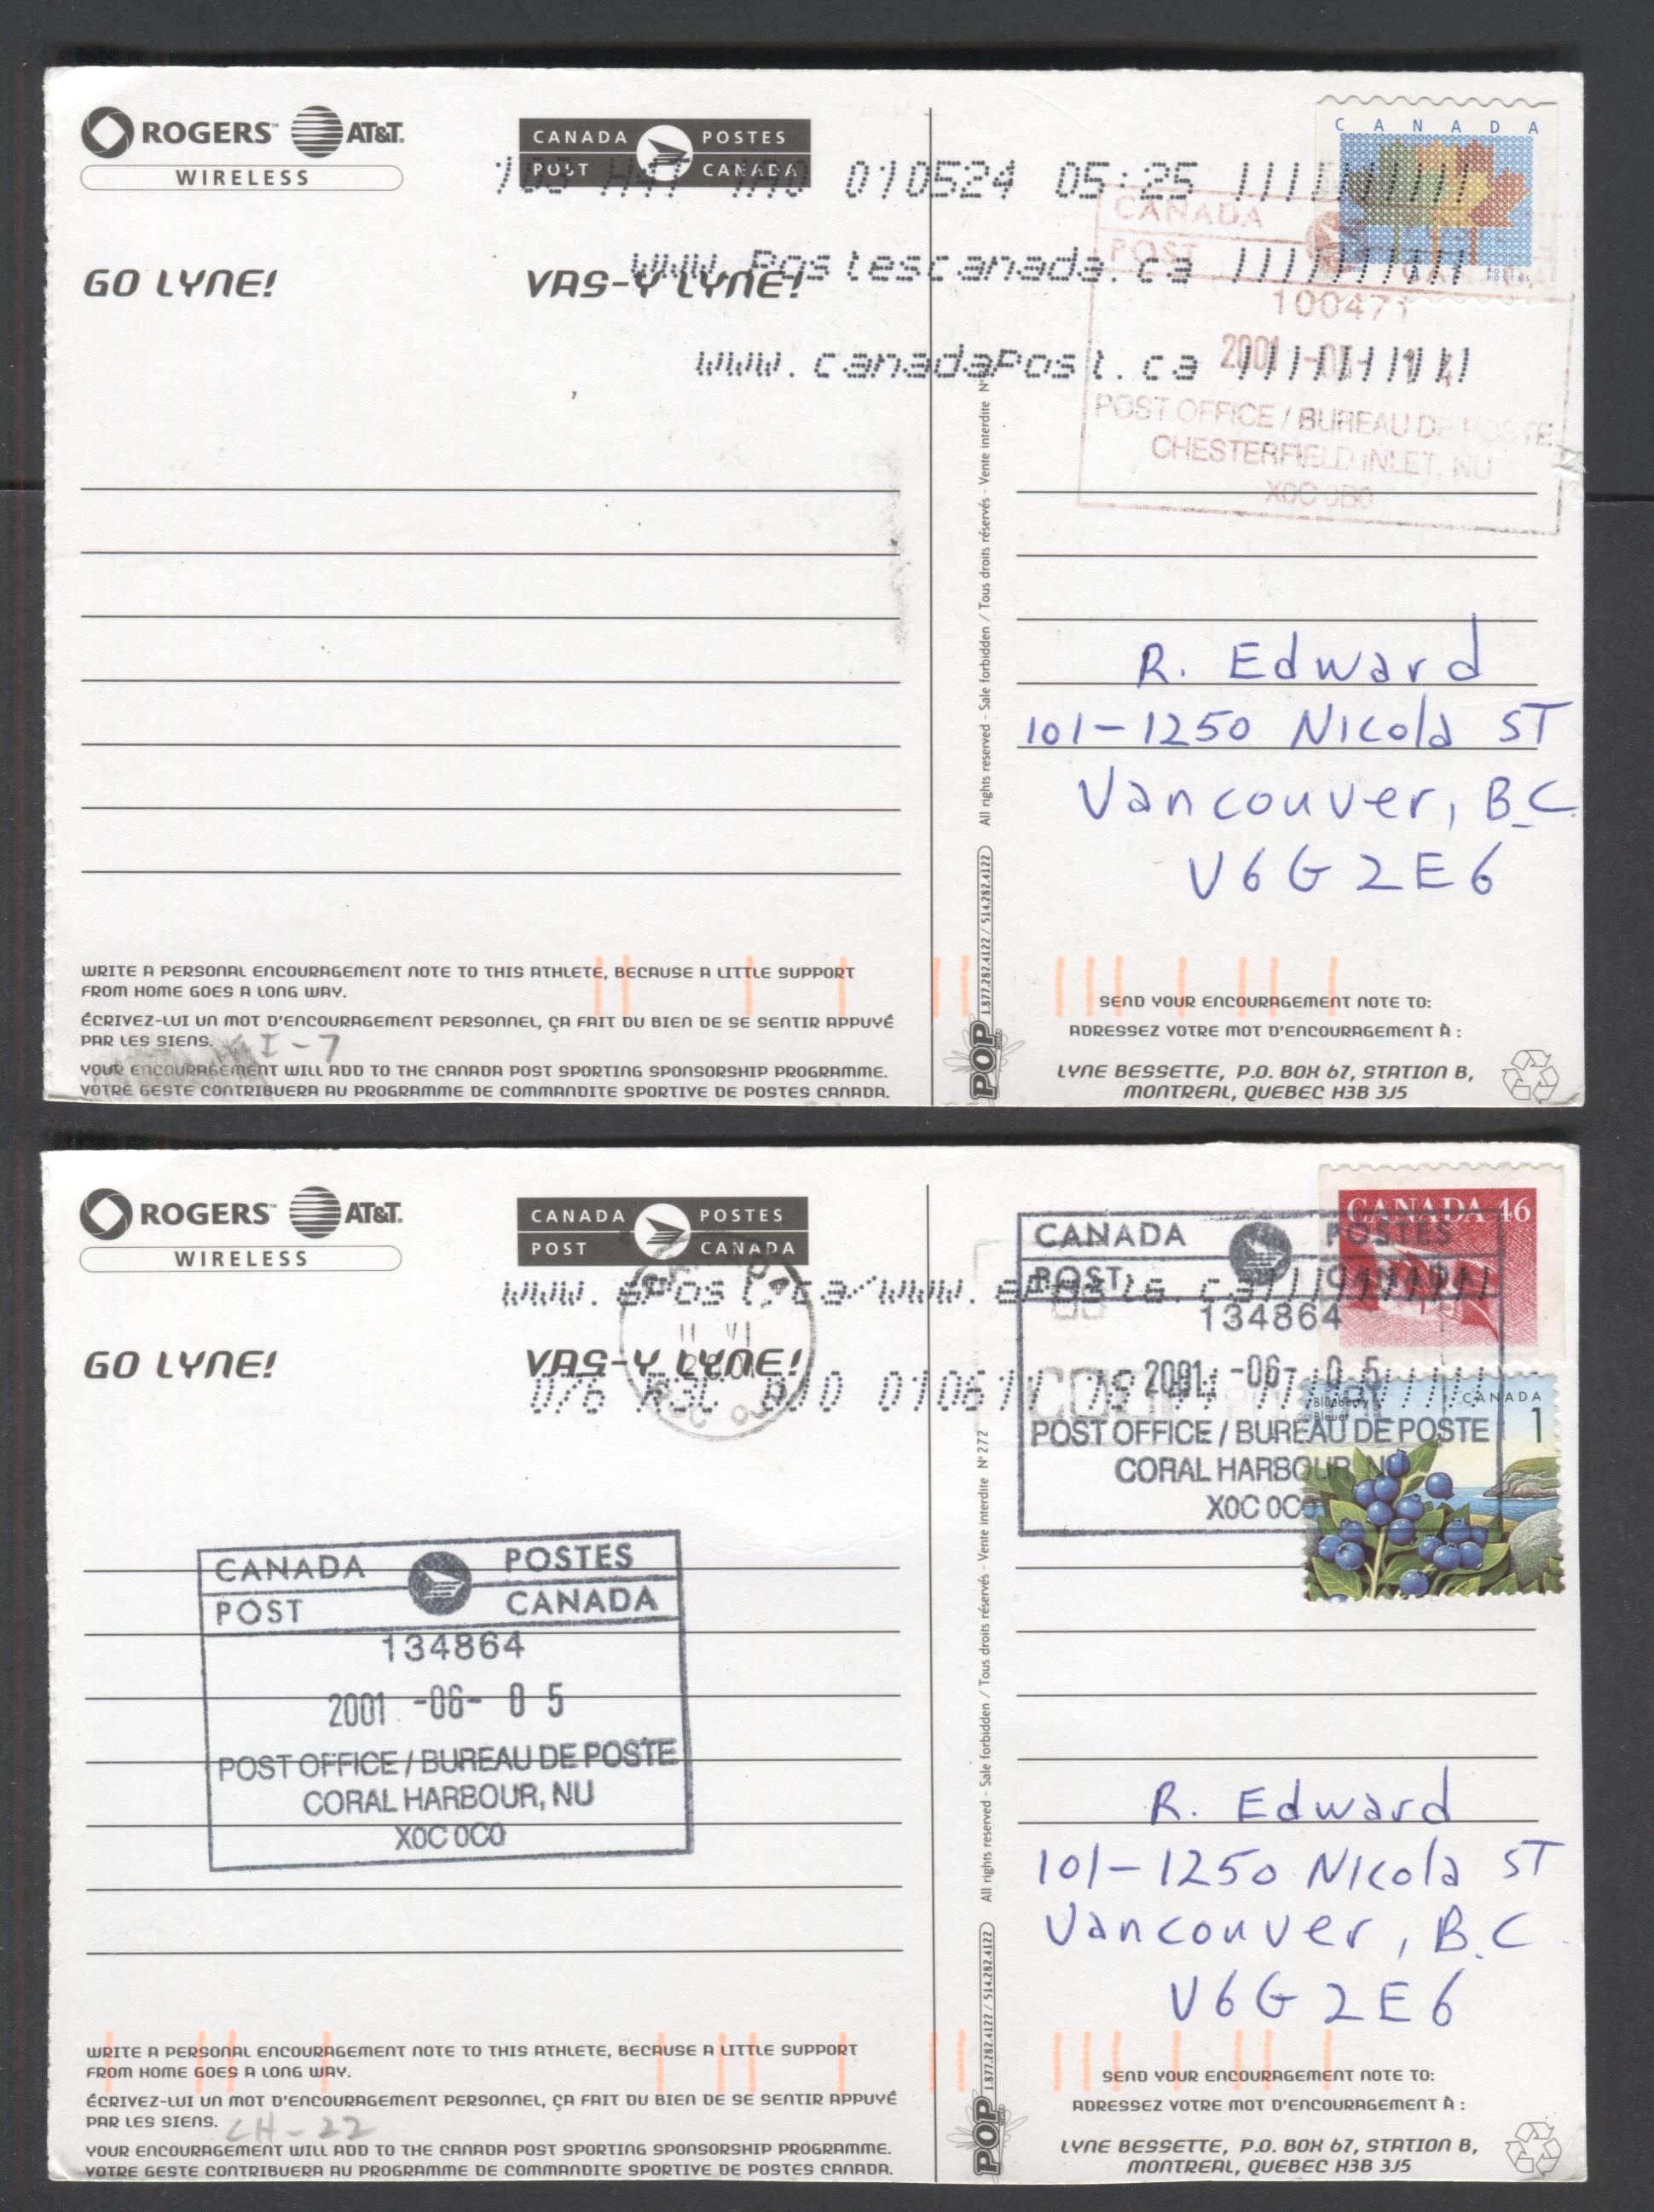 ROGERS™ AT&T.
WIRELESS
CANADA POSTES
POST CANADA
CANADA
010524 05:25
CANADA
POST
www.Postescanada.ca
GO LYNE! VAS-Y LYNE!
100471
www.canadaPost.ca
2001
POST OFFICE / BUREAU DE POSTE
CHESTERFIELD INLET, NU
X0C 0B0
All rights reserved - Sale forbidden / Tous droits réservés - Vente interdite N°
R. Edward
101-1250 Nicola ST
Vancouver, B.C.
V6G 2E6
POP 1.877.282.4122 / 514.282.4122
WRITE A PERSONAL ENCOURAGEMENT NOTE TO THIS ATHLETE, BECAUSE A LITTLE SUPPORT
FROM HOME GOES A LONG WAY.
ÉCRIVEZ-LUI UN MOT D'ENCOURAGEMENT PERSONNEL, ÇA FAIT DU BIEN DE SE SENTIR APPUYÉ
PAR LES SIENS.
I-7
YOUR ENCOURAGEMENT WILL ADD TO THE CANADA POST SPORTING SPONSORSHIP PROGRAMME.
VOTRE GESTE CONTRIBUERA AU PROGRAMME DE COMMANDITE SPORTIVE DE POSTES CANADA.
SEND YOUR ENCOURAGEMENT NOTE TO:
ADRESSEZ VOTRE MOT D'ENCOURAGEMENT À :
LYNE BESSETTE, P.O. BOX 67, STATION B,
MONTREAL, QUEBEC H3B 3J5
ROGERS™ AT&T.
WIRELESS
CANADA POSTES
POST CANADA
CANADA 46
CANADA POSTES
POST CANADA
www.ePost.ca/www.ePoste.ca
134864
GO LYNE! VAS-Y LYNE!
2001 -06- 05
Blueberry
Bleuet
CANADA
1
POST OFFICE / BUREAU DE POSTE
CORAL HARBOUR, NU
X0C 0C0
CANADA POSTES
POST CANADA
134864
2001 -06- 05
POST OFFICE / BUREAU DE POSTE
CORAL HARBOUR, NU
X0C 0C0
All rights reserved - Sale forbidden / Tous droits réservés - Vente interdite N° 272
R. Edward
101-1250 Nicola ST
Vancouver, B.C.
V6G 2E6
POP 1.877.282.4122 / 514.282.4122
WRITE A PERSONAL ENCOURAGEMENT NOTE TO THIS ATHLETE, BECAUSE A LITTLE SUPPORT
FROM HOME GOES A LONG WAY.
ÉCRIVEZ-LUI UN MOT D'ENCOURAGEMENT PERSONNEL, ÇA FAIT DU BIEN DE SE SENTIR APPUYÉ
PAR LES SIENS.
CH-22
YOUR ENCOURAGEMENT WILL ADD TO THE CANADA POST SPORTING SPONSORSHIP PROGRAMME.
VOTRE GESTE CONTRIBUERA AU PROGRAMME DE COMMANDITE SPORTIVE DE POSTES CANADA.
SEND YOUR ENCOURAGEMENT NOTE TO:
ADRESSEZ VOTRE MOT D'ENCOURAGEMENT À :
LYNE BESSETTE, P.O. BOX 67, STATION B,
MONTREAL, QUEBEC H3B 3J5